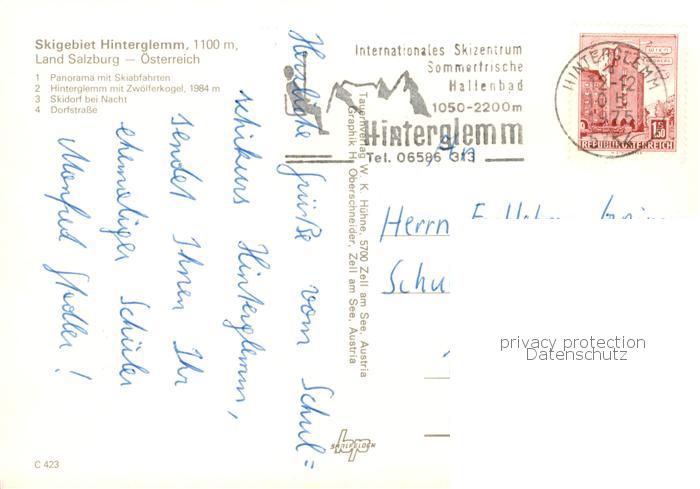 Skigebiet Hinterglemm, 1100 m,
Land Salzburg — Österreich
1 Panorama mit Skiabfahrten
2 Hinterglemm mit Zwölferkogel, 1984 m
3 Skidorf bei Nacht
4 Dorfstraße
Herzliche Grüße vom Schul=
schikurs Hinterglemm,
sendet Ihnen Ihr
ehemaliger Schüler
Manfred Stadler!
Tauernverlag W. K. Hühne, 5700 Zell am See, Austria
Graphik H. Oberschneider, Zell am See, Austria
Internationales Skizentrum
Sommerfrische
Hallenbad
1050-2200m
Hinterglemm
Tel. 06586 313
HINTERGLEMM
WIEN
1.50
REPUBLIK ÖSTERREICH
An
Herrn
privacy protection
Datenschutz
C 423